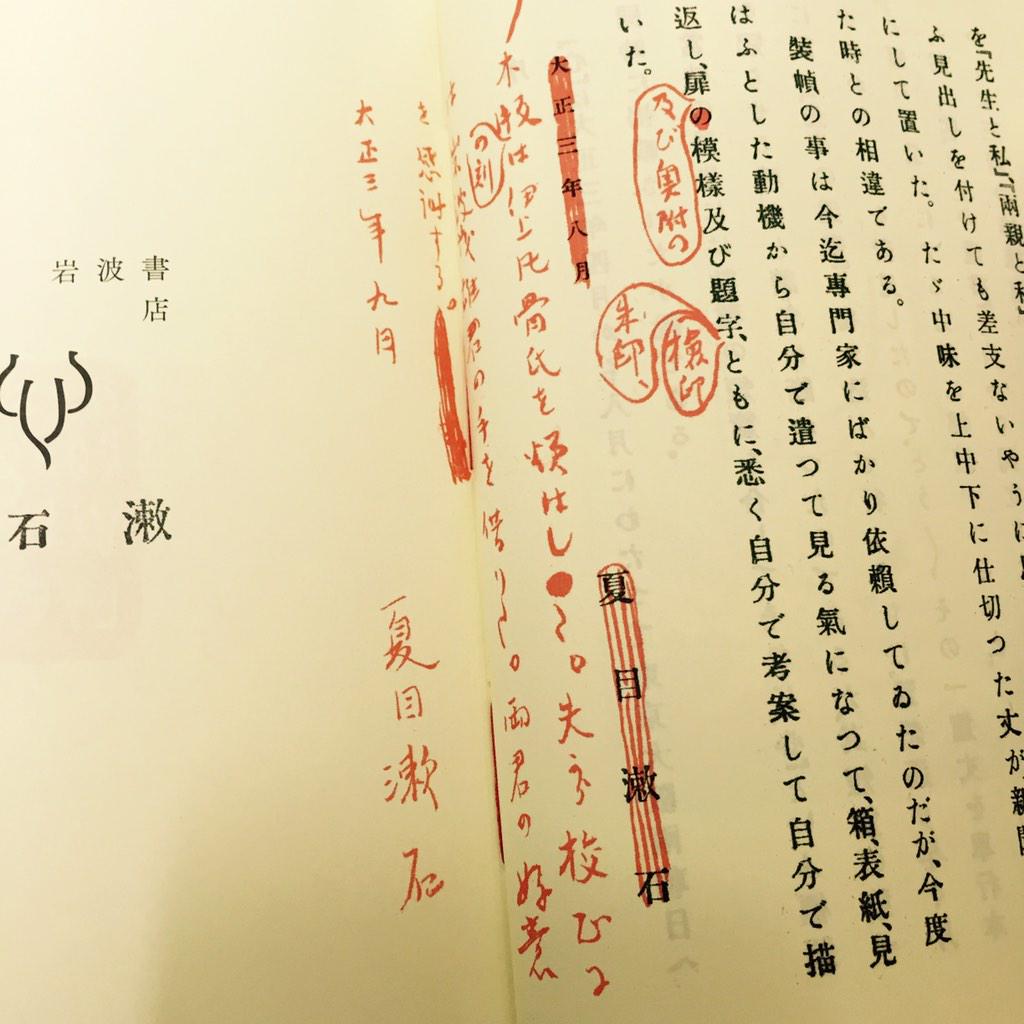 を『先生と私』、『兩親と私』
ふ見出しを付けても差支ないやうに
にして置いた。たゞ中味を上中下に仕切つた丈が
た時との相違である。
裝幀の事は今迄專門家にばかり依賴してゐたのだが、今度
はふとした動機から自分で遣つて見る氣になつて、箱、表紙、見
返し、扉の模樣及び題字、ともに、悉く自分で考案して自分で描
いた。
及び奥附の
檢印
朱印、
大正三年八月
夏目漱石
木版は伊上凡骨氏を煩はした。夫から校正に
の刻
は岩波茂雄君の手を借りた。兩君の好意
を感謝する。
大正三年九月
夏目漱石
漱石
岩波書店